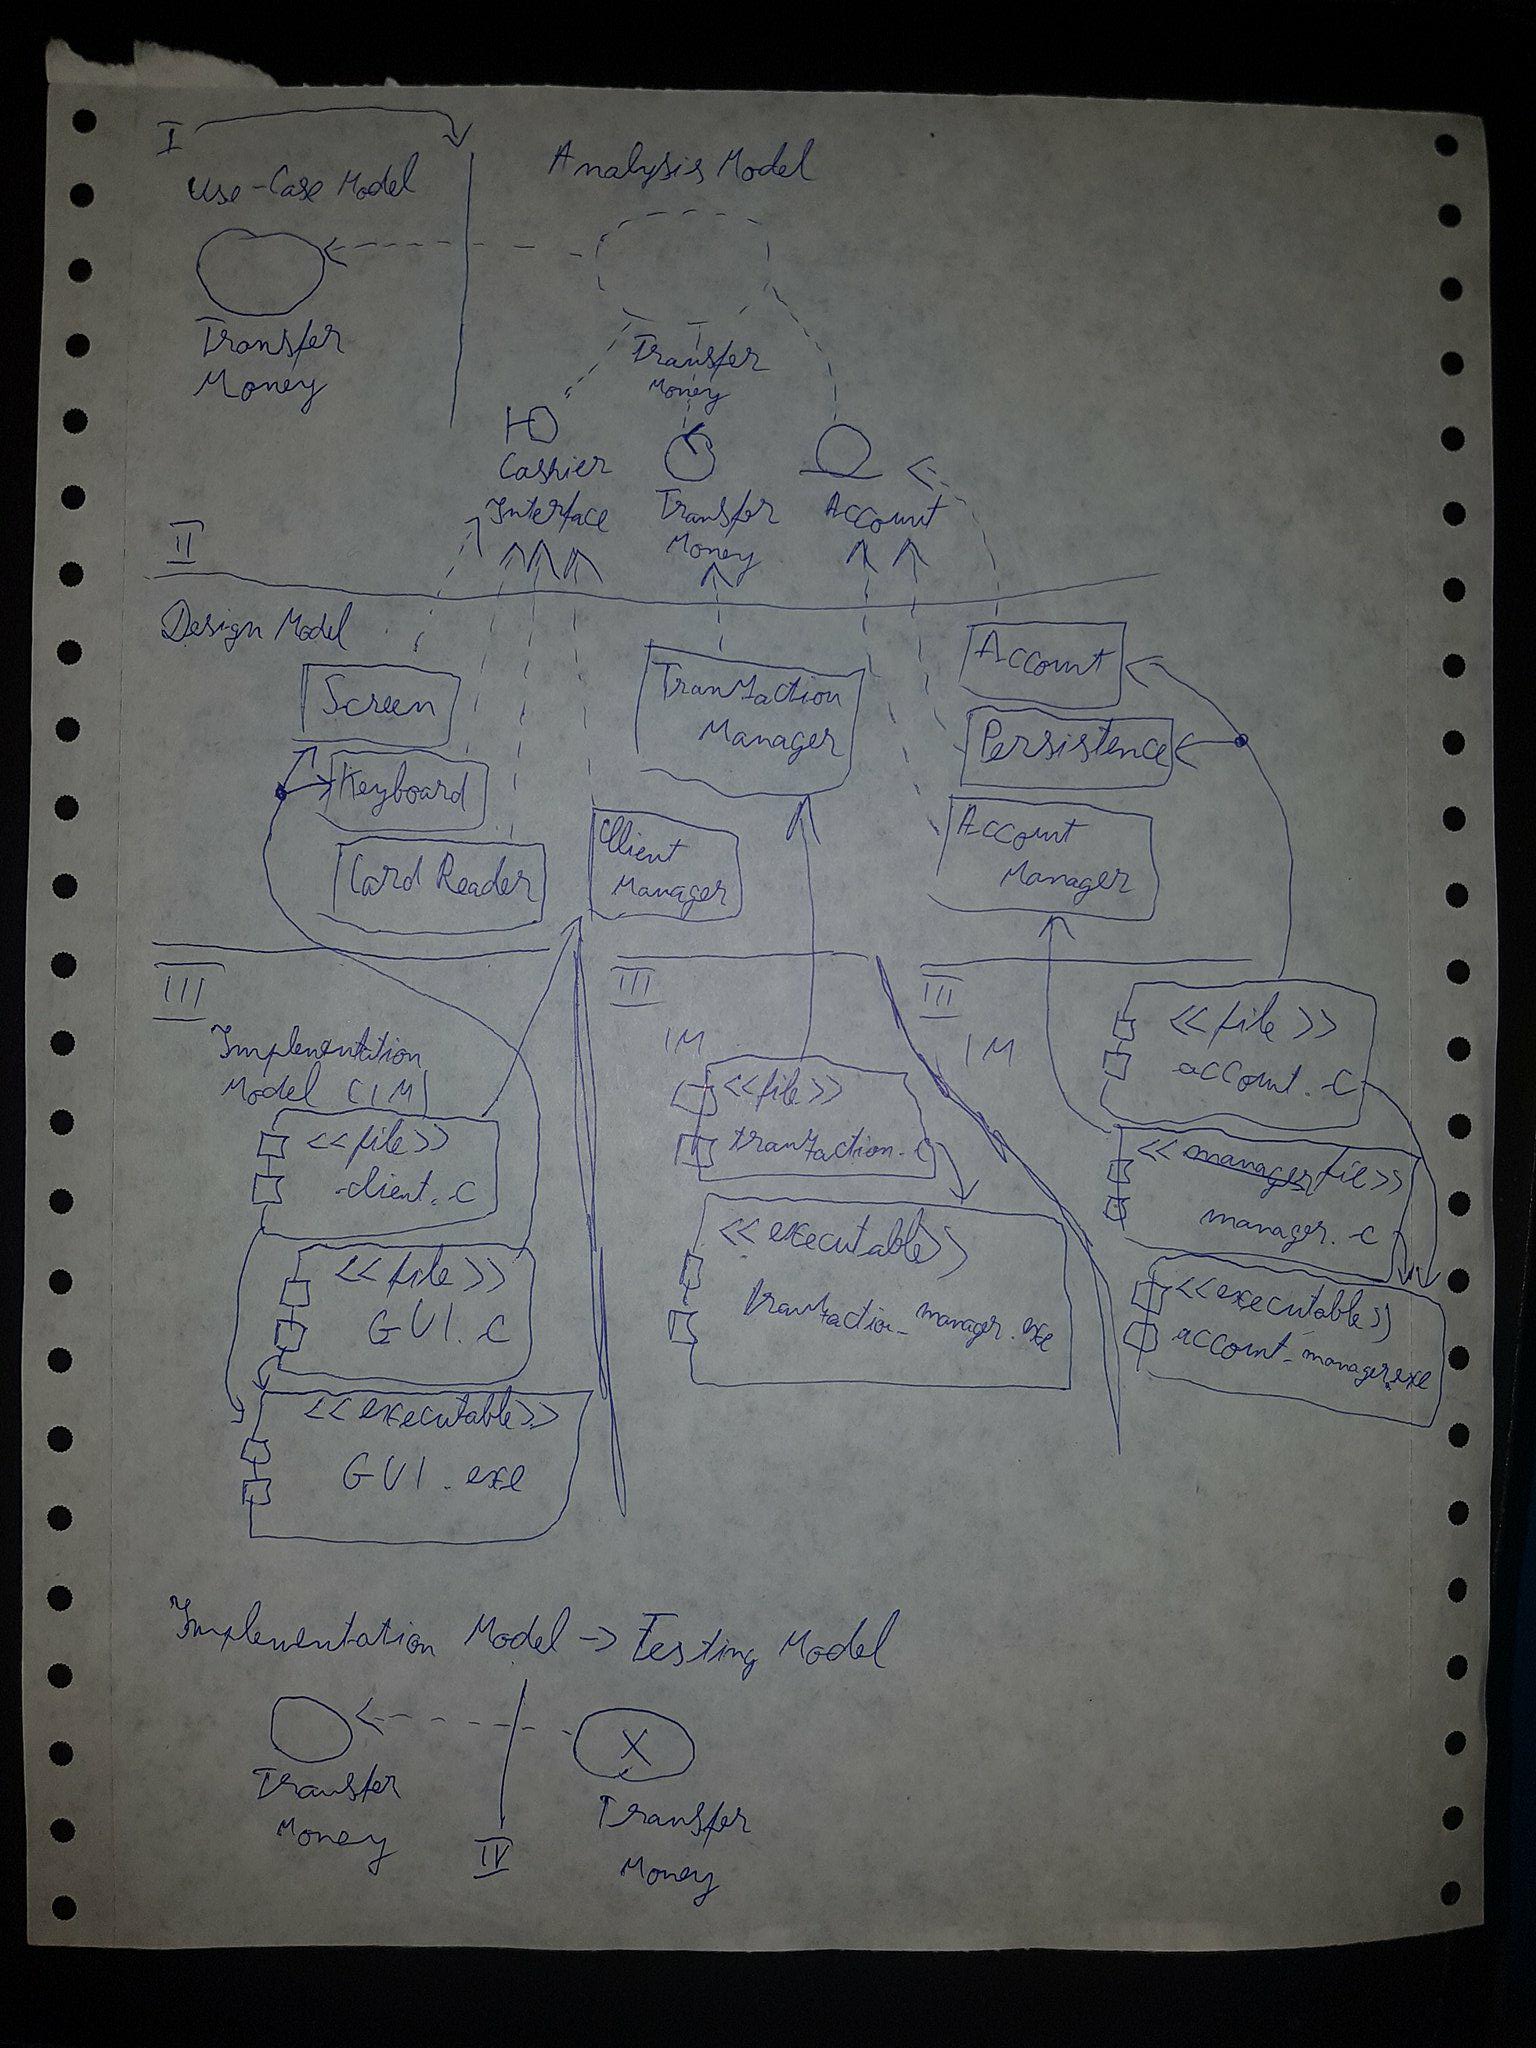 I
Use-Case Model
Analysis Model
Transfer
Money
Transfer
Money
Cashier
Interface
Transfer
Money
Account
II
Design Model
Screen
Keyboard
Card Reader
Client
Manager
Tranzaction
Manager
Account
Persistence
Account
Manager
III
Implementation
Model (IM)
<<file>>
client.c
<<file>>
GUI.c
<<executable>>
GUI.exe
III
IM
<<file>>
tranzaction.c
<<executable>>
tranzaction_manager.exe
III
IM
<<file>>
account.c
<<manager file>>
manager.c
<<executable>>
account_manager.exe
Implementation Model -> Testing Model
Transfer
Money
IV
X
Transfer
Money